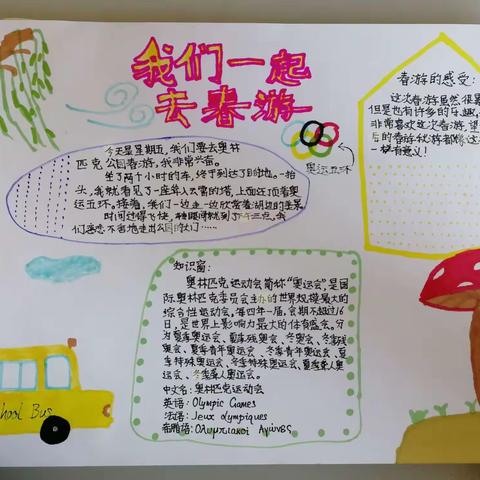 我们一起
去春游
今天是星期五，我们要去奥林
匹克公园春游，我非常兴奋。
坐了两个小时的车，终于到达了目的地。一抬
头，我就看见了一座耸入云霄的塔，上面还顶着奥
运五环。接着，我们一边走一边欣赏着湖边的美景，
时间过得飞快，转眼间就到了下午三点，我
们恋恋不舍地走出公园的大门……
奥运五环
春游的感受：
这次春游虽然很累
但是也有许多的乐趣，
非常喜欢这次春游，望
后的春游都能像这
一样有意义！
知识窗：
奥林匹克运动会简称“奥运会”，是国
际奥林匹克委员会主办的世界规模最大的
综合性运动会，每四年一届，会期不超过16
日，是世界上影响力最大的体育盛会。分
为夏季奥运会、夏季残奥会、冬奥会、冬季残
奥会、夏季青年奥运会、冬季青年奥运会、夏
季特殊奥运会、冬季特殊奥运会、夏季聋人奥
运会、冬季聋人奥运会。
中文名：奥林匹克运动会
英语：Olympic Games
法语：Jeux olympiques
希腊语：Ολυμπιακοί Αγώνες
School Bus